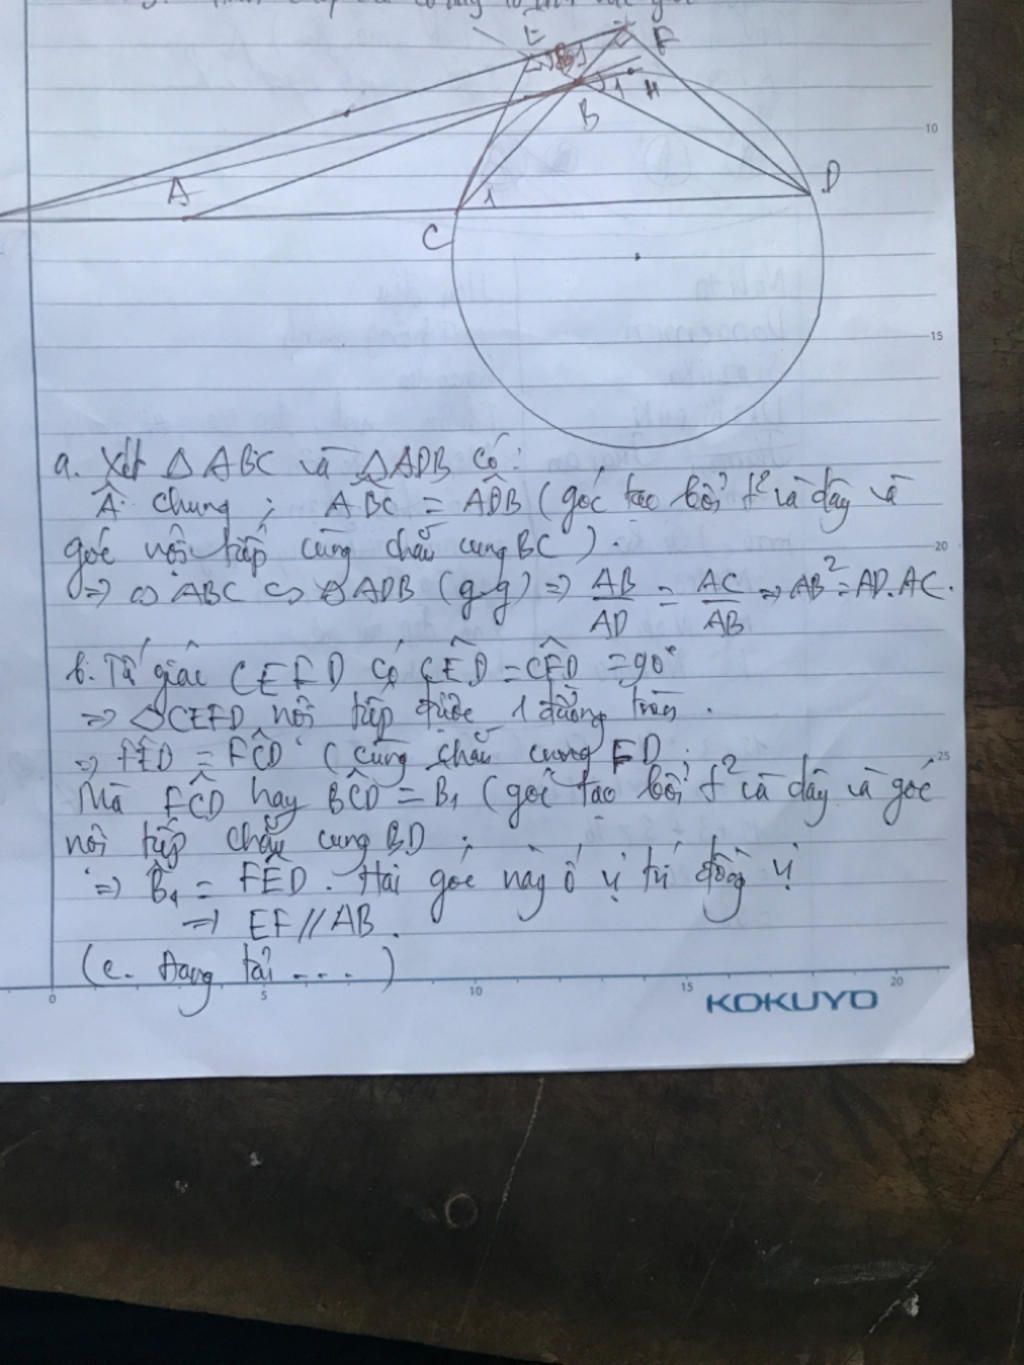 E
F
H
B
10
A
D
1
C
15
a. Xét △ ABC và △ADB có:
Â chung ; ABC = ADB (góc tạo bởi t² và dây và
góc nội tiếp cùng chắn cung BC).
20
=> △ ABC ∽ △ ADB (g-g) => AB/AD = AC/AB => AB² = AD.AC.
b. Tứ giác CEFD có CÊD = CF̂D = 90°
=> ◇CEFD nội tiếp được 1 đường tròn.
=> FÊD = FĈD (cùng chắn cung FD;
25
Mà FĈD hay BĈD = B₁ (góc tạo bởi t² và dây và góc
nội tiếp chắn cung BD ;
=> B̂₁ = FÊD. Hai góc này ở vị trí đồng vị
=> EF // AB.
(c. Đang tải ....)
0 5 10 15 20
KOKUYO